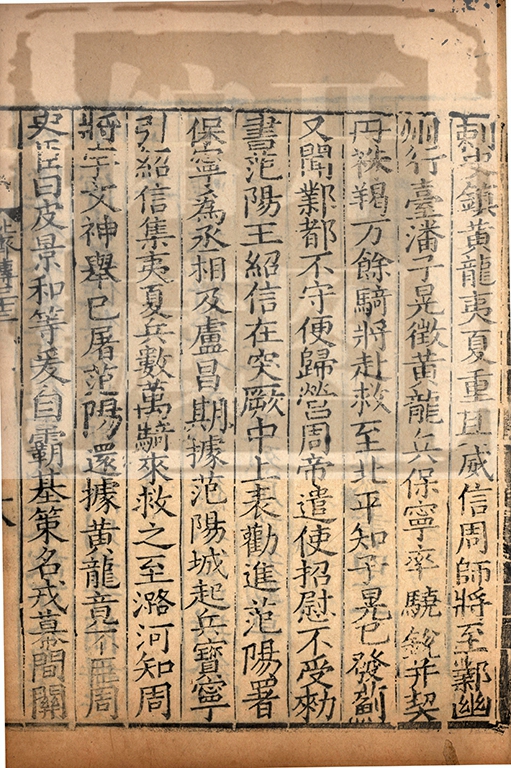 刺史鎮黃龍夷夏重其威信周師將至鄴幽
州行臺潘子晃徵黃龍兵保寧率驍銳并契
丹靺羯万餘騎將赴救至北平知子晃已發薊
又聞鄴都不守便歸營周帝遣使招慰不受勑
書范陽王紹信在突厥中上表勸進范陽署
保寧為丞相及盧昌期據范陽城起兵寶寧
引紹信集夷夏兵數萬騎來救之至潞河知周
將宇文神舉已屠范陽還據黃龍竟不臣周
史臣曰皮景和等爰自霸基策名戎幕間關